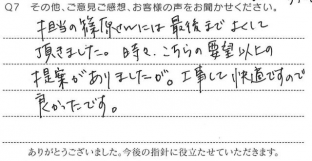 Q7 その他、ご意見ご感想、お客様の声をお聞かせください。
担当の篠原さんには最後までよくして
頂きました。時々、こちらの要望以上の
提案がありましたが。工事して快適ですので
良かったです。
ありがとうございました。今後の指針に役立たせていただきます。